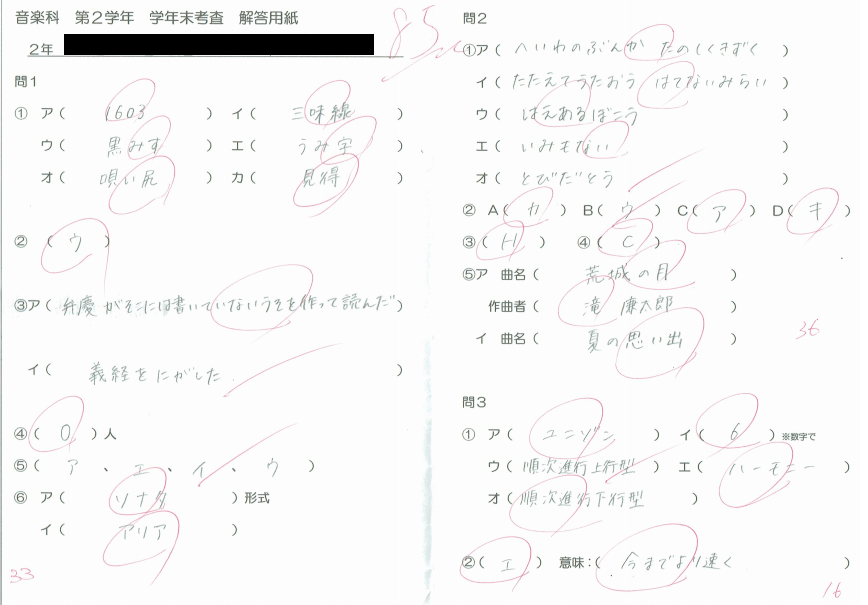 音楽科 第2学年 学年末考査 解答用紙
85
2年
問1
① ア( 1603 ) イ( 三味線 )
ウ( 黒みす ) エ( うみ字 )
オ( 唄い尻 ) カ( 見得 )
② ( ウ )
③ア( 弁慶がそこには書いていないうそを作って読んだ )
イ( 義経をにがした. )
④( 0 )人
⑤( ア 、 エ 、 イ 、 ウ )
⑥ ア( ソナタ )形式
イ( アリア )
33
問2
①ア( へいわのぶんか たのしくきずく )
イ( たたえてうたおう はてないみらい )
ウ( はえあるぼこう )
エ( いみもない )
オ( とびだそう )
② A( カ ) B( ウ ) C( ア ) D( キ )
③( H ) ④( C )
⑤ア 曲名( 荒城の月 )
作曲者( 滝 廉太郎 )
イ 曲名( 夏の思い出 )
36
問3
① ア( ユニゾン ) イ( 6 )※数字で
ウ( 順次進行上行型 ) エ( ハーモニー )
オ( 順次進行下行型 )
②( エ ) 意味:( 今までより速く )
16